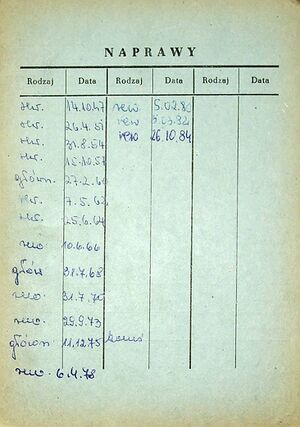 NAPRAWY
Rodzaj Data Rodzaj Data Rodzaj Data
14.10.47 rew 5.02.80
26.4.51 rew
31.8.54 rew 26.10.84
15.10.57
główn. 27.2.60
7.5.62
25.6.64
rew. 10.6.66
głów 31.7.68
rew. 31.7.70
rew. 29.9.73
główn 11.12.75
rew. 6.4.78